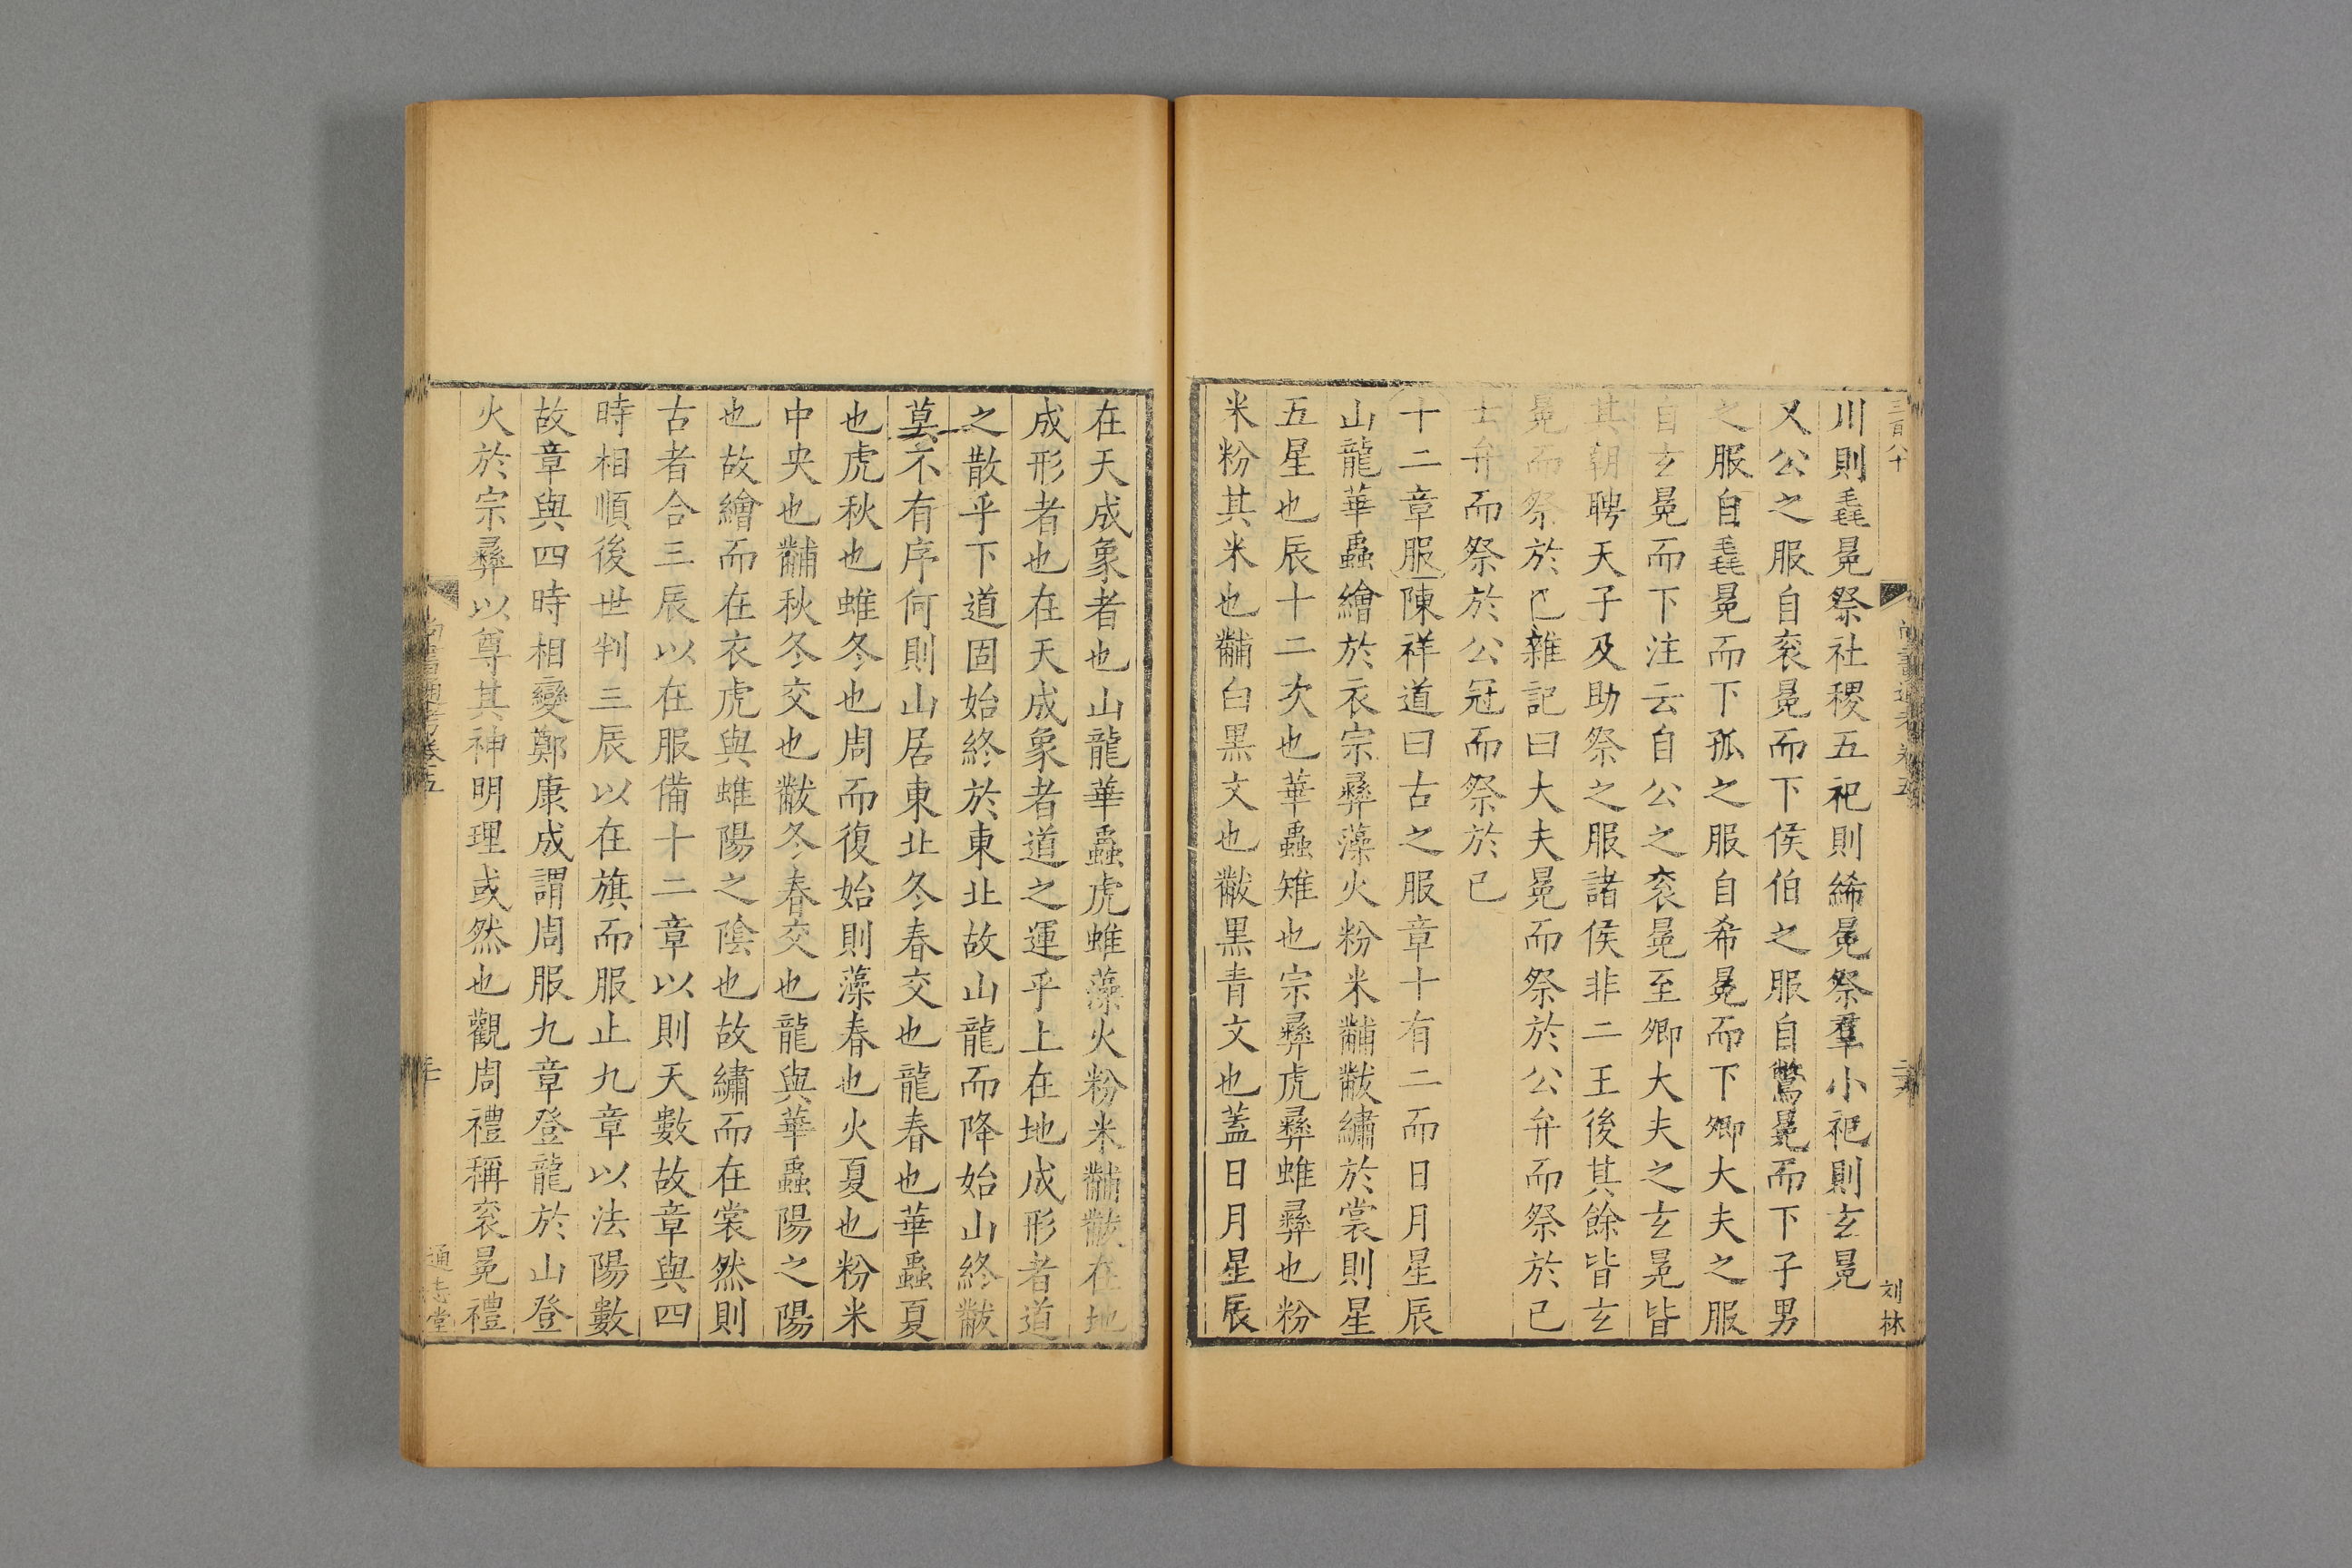 三百八十
尚書通考卷五
二十六
刘林
川則毳冕祭社稷五祀則絺冕祭羣小祀則玄冕
又公之服自衮冕而下侯伯之服自鷩冕而下子男
之服自毳冕而下孤之服自希冕而下卿大夫之服
自玄冕而下注云自公之衮冕至卿大夫之玄冕皆
其朝聘天子及助祭之服諸侯非二王後其餘皆玄
冕而祭於已雜記曰大夫冕而祭於公弁而祭於已
士弁而祭於公冠而祭於已
十二章服陳祥道曰古之服章十有二而日月星辰
山龍華蟲繪於衣宗彞藻火粉米黼黻繡於裳則星
五星也辰十二次也華蟲雉也宗彞虎彞蜼彞也粉
米粉其米也黼白黑文也黻黑青文也蓋日月星辰
在天成象者也山龍華蟲虎蜼藻火粉米黼黻在地
成形者也在天成象者道之運乎上在地成形者道
之散乎下道固始終於東北故山龍而降始山終黻
莫不有序何則山居東北冬春交也龍春也華蟲夏
也虎秋也蜼冬也周而復始則藻春也火夏也粉米
中央也黼秋冬交也黻冬春交也龍與華蟲陽之陽
也故繪而在衣虎與蜼陽之陰也故繡而在裳然則
古者合三辰以在服備十二章以則天數故章與四
時相順後世判三辰以在旗而服止九章以法陽數
故章與四時相變鄭康成謂周服九章登龍於山登
火於宗彞以尊其神明理或然也觀周禮稱衮冕禮
尚書通考卷五
通志堂